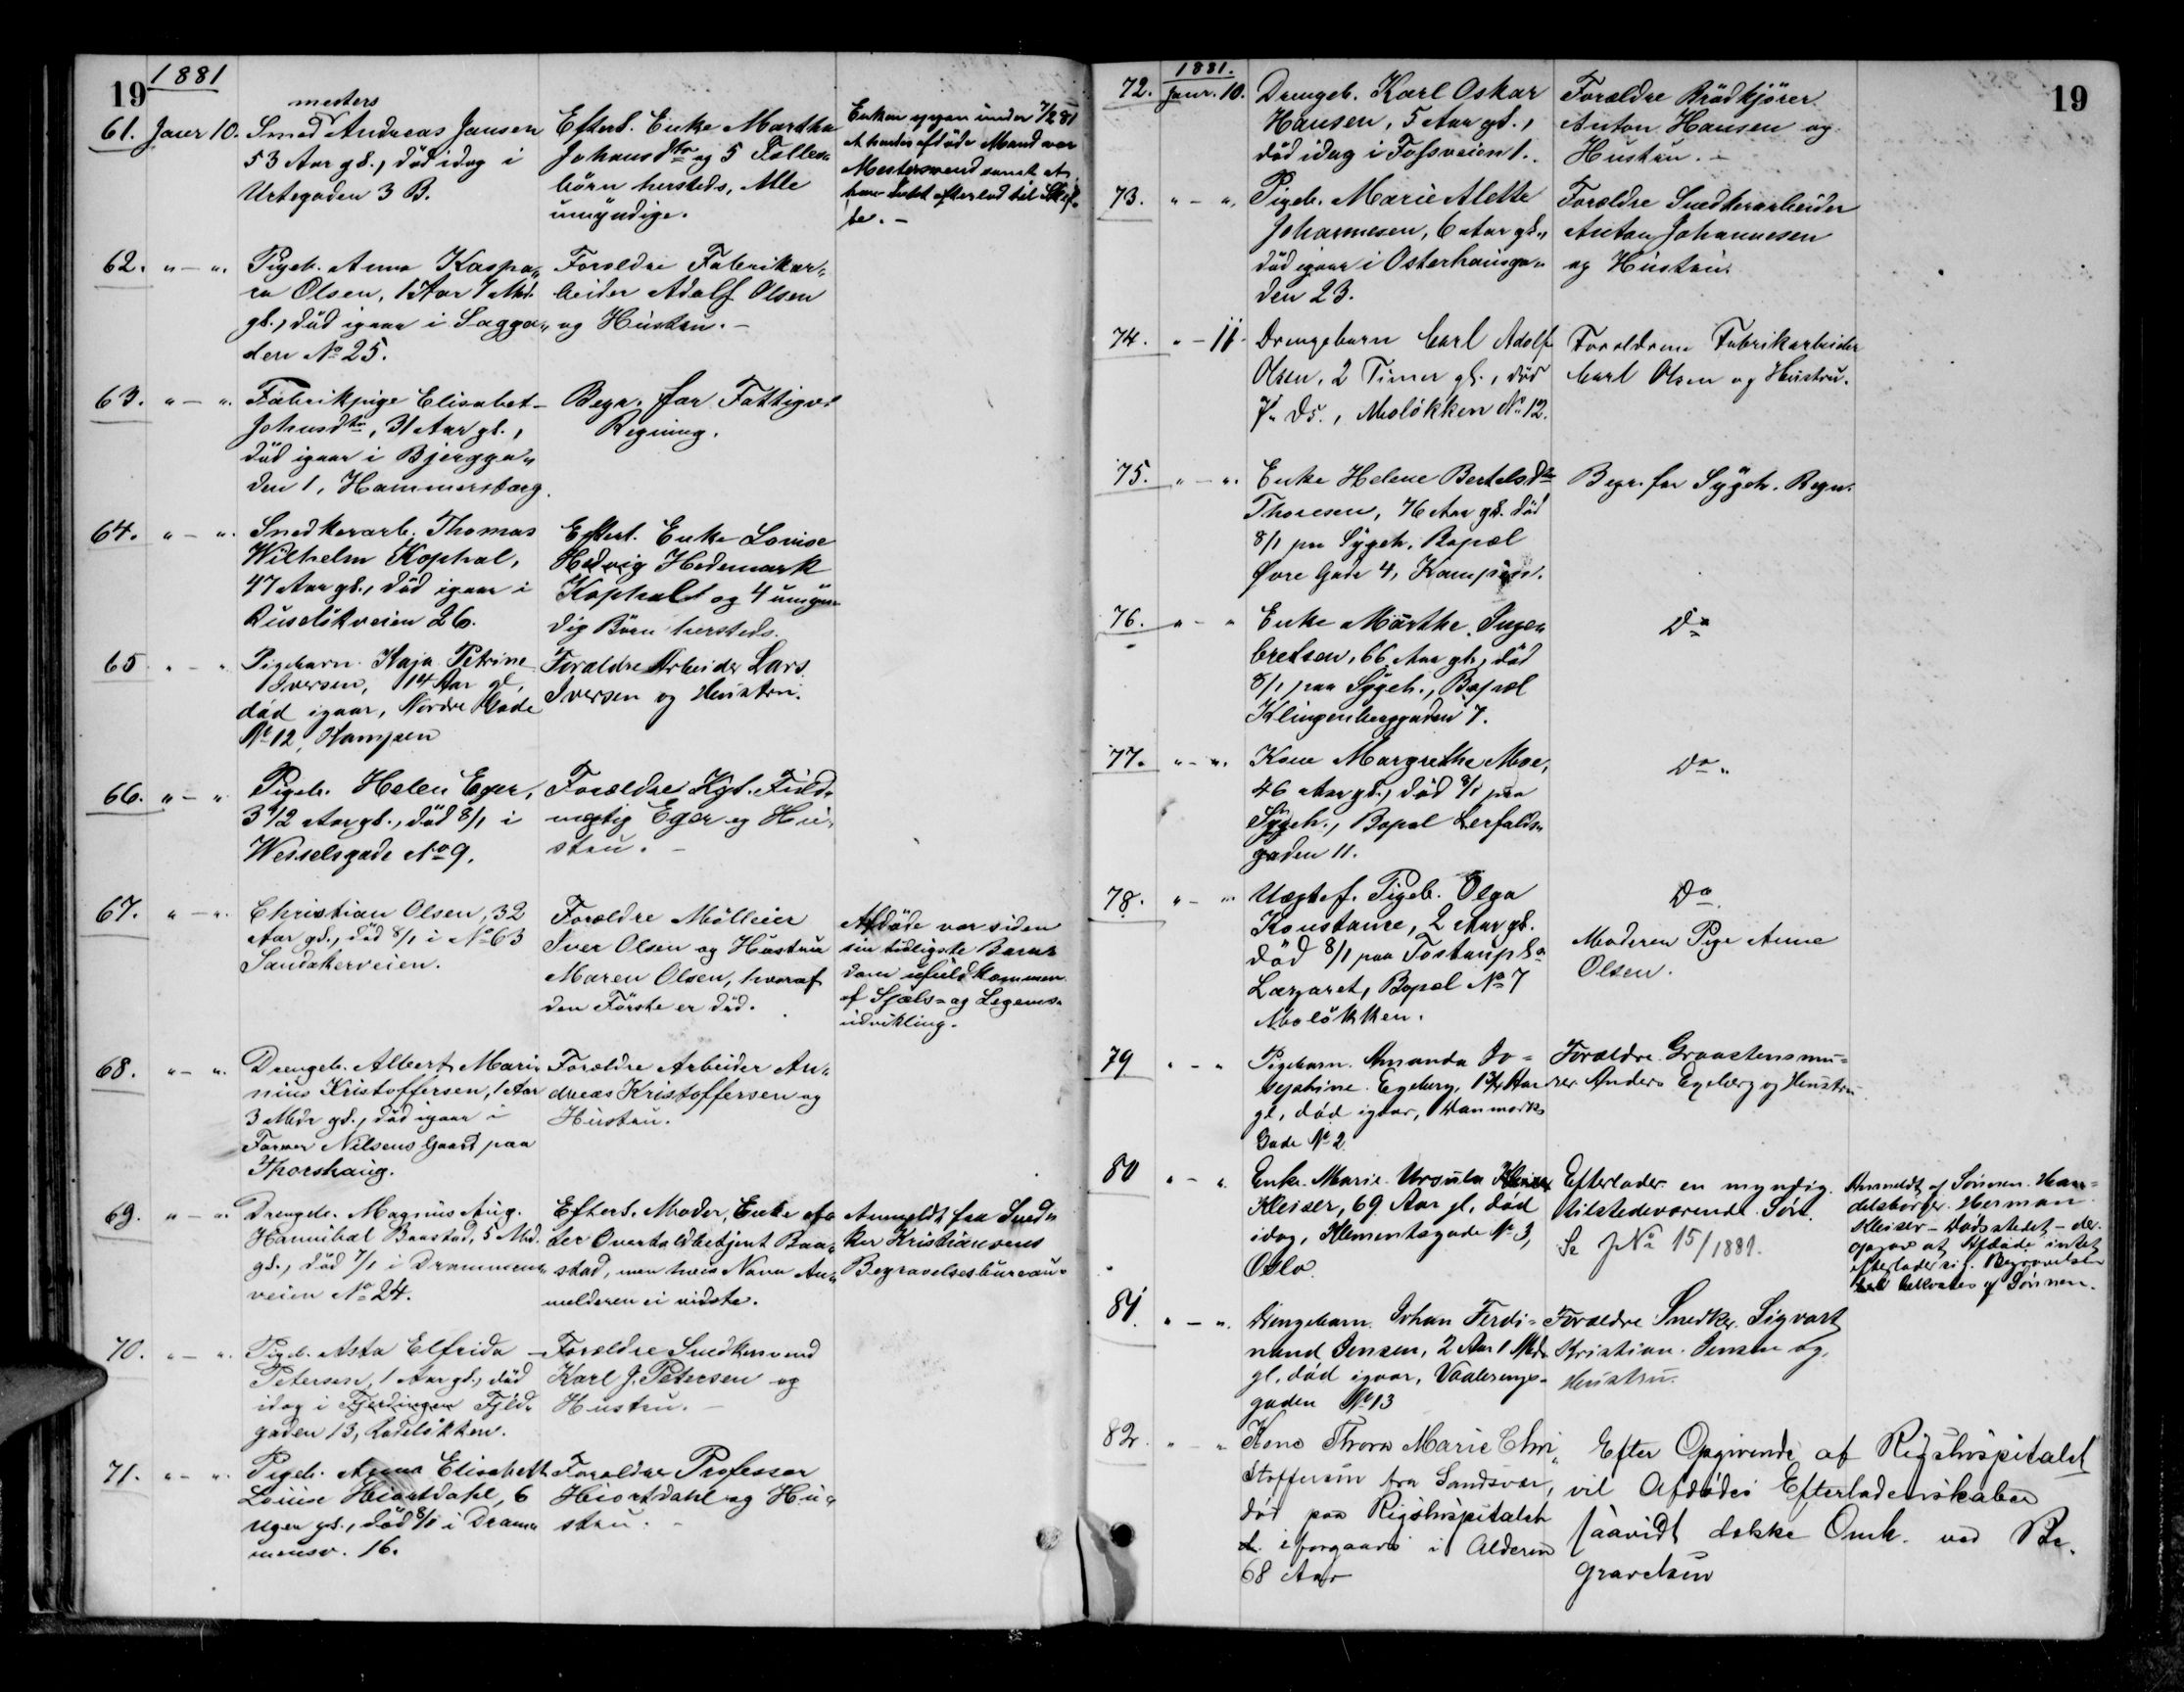 19
1881
61. Janr 10.
mesters
Smed Andreas Jansen
53 Aar gl., död idag i
Urtegaden 3 B.
Efterl. Enke Martha
Johansdtr og 5 Fælles
börn hersteds, Alle
umyndige.
Enken opgav under 7/2 81
at hendes afdöde Mand var
Mestersvend samt at
han Intet efterlod til Skif-
te. -
62. " - ".
Pigeb. Anna Kaspa-
ra Olsen, 1 Aar 7 Md.
gl., död igaar i Sagga-
den No 25.
Forældre Fabrikar-
beider Adolf Olsen
og Hustru. -
63. " - ".
Fabrikpige Elisabet
Johnsdtr, 31 Aar gl.,
död igaar i Bjergga-
den 1, Hammersborg.
Begr. for Fattigv.
Regning.
64. " - ".
Snedkerarb. Thomas
Wilhelm Kophal,
47 Aar gl., död igaar i
Ruselökveien 26.
Efterl. Enke Lovise
Hedvig Hedemark
Kophal og 4 umyn-
dig Börn hersteds.
65 " - "
Pigebarn Kaja Petrine
Iversen, 14 Aar gl,
död igaar, Nordre Gade
No 12, Kampen
Forældre Arbeider Lars
Iversen og Hustru.
66. " - "
Pigeb. Helen Eger,
3 1/2 Aar gl., död 8/1 i
Wesselsgade No 9.
Forældre Kgl. Fuld-
mægtig Eger og Hu-
stru. -
67. " - ".
Christian Olsen, 32
Aar gl., död 8/1 i No 63
Sandakerveien.
Forældre Mölleier
Iver Olsen og Hustru
Maren Olsen, hvoraf
den Förste er död.
Afdöde var siden
sin tidligste Barn-
dom ufuldkommen
af Sjæls- og Legems-
udvikling.
68. " - ".
Drengeb. Albert Mari-
nius Kristoffersen, 1 Aar
3 Mdr gl., död igaar i
Farver Nilsens Gaard paa
Thorshaug.
Forældre Arbeider An-
dreas Kristoffersen og
Hustru.
69. " - ".
Drengeb. Magnus Aug.
Hannibal Baastad, 5 Md.
gl., död 7/1 i Drammens-
veien No 24.
Efterl. Moder, Enke ef-
ter Overtoldbetjent Baa-
stad, men hvis Navn An-
melderen ei vidste.
Anmeldt fra Sned-
ker Kristiansens
Begravelsesbureau.
70. " - ".
Pigeb. Asta Elfrida
Petersen, 1 Aar gl., död
idag i Fjerdingen Fjeld-
gaden 13, Rodelökken.
Forældre Snedkersvend
Karl J. Petersen og
Hustru. -
71. " - ".
Pigeb. Anna Elisabeth
Louise Hiortdahl, 6
Uger gl., död 8/1 i Dram-
mensv. 16.
Forældre Professor
Hiortdahl og Hu-
stru. -
19
1881.
72. Janr. 10.
Drengeb. Karl Oskar
Hansen, 5 Aar gl.,
död idag i Fossveien 1.
Forældre Brödkjörer
Anton Hansen og
Hustru. -
73. " - ".
Pigeb. Marie Alette
Johannesen, 6 Aar gl.,
död igaar i Osterhausga-
den 23.
Forældre Snedkerarbeider
Anton Johannesen
og Hustru.
74. " - 11
Drengebarn Carl Adolf
Olsen, 2 Timer gl., död
7de ds., Molökken No 12.
Forældrene Fabrikarbeider
Carl Olsen og Hustru.
75. " - ".
Enke Helene Bertelsdtr
Thoresen, 76 Aar gl. död
8/1 paa Sygeh. Bopæl
Øvre Gade 4, Kampen.
Begr. for Sygeh. Regn.
76. " - "
Enke Märthe Inge-
bretsen, 66 Aar gl., död
8/1 paa Sygeh., Bopæl
Klingenberggaden 7.
Do
77. " - ".
Kone Margrethe Moe,
46 Aar gl., död 8/1 paa
Sygeh., Bopæl Lerfalds-
gaden 11.
Do.
78. " - "
Uægtef. Pigeb. Olga
Konstance, 2 Aar gl.
död 8/1 paa
Lazaret, Bopæl No 7
Molökken.
Do
Moderen Pige Anne
Olsen.
79 " - "
Pigebarn Amanda Jo-
sephine Egeberg, 1 3/4 Aar
gl, död igaar, Danmarks
Gade No 2
Forældre Graastensmu-
rer Anders Egeberg og Hustru
80 " - ".
Enke Marie Ursula
Kleiser, 69 Aar gl, död
idag, Klementsgade No 3,
Oslo
Efterlader en myndig
tilstedeværende Sön.
Se JNo 15/1881.
Anmeldt af Sönnen Han-
delsborger Herman
Kleiser - Dödsstedet - der
opgav at Afdöde intet
efterlader sig. Begravelsen
bekostes af Sönnen.
81. " - ".
Drengebarn Johan Ferdi-
nand Jensen, 2 Aar 1 Md
gl, död igaar, Vaalerengs-
gaden No 13
Forældre Snedker Sigvart
Kristian Jensen og
Hustru.
82. " - "
Kone Thora Marie Chri-
stoffersen fra Sandsvær,
död paa Rigshospitalet
iforgaars i Alderen
68 Aar
Efter Opgivende af Rigshospitalet
vil Afdödes Efterladenskaber
saavidt dække Omk. ved Be-
gravelsen